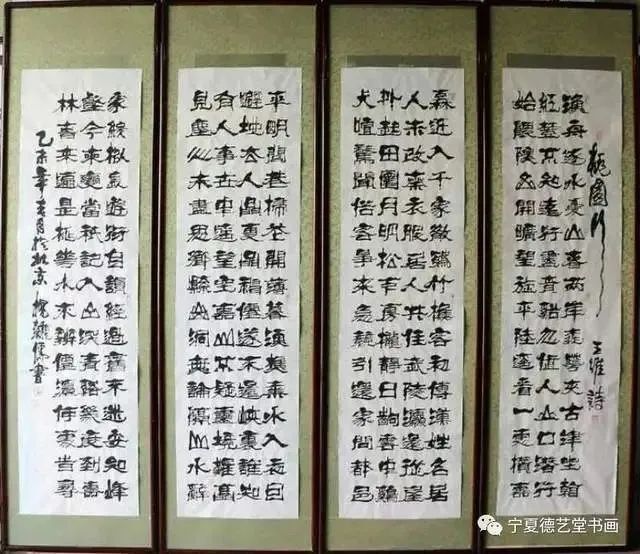 桃園行
王維詩
漁舟逐水愛山春兩岸桃花夾古津坐看
紅樹不知遠行盡青谿忽值人山口潛行
始隈隩山開曠望旋平陸遙看一處攢雲
樹近入千家散花竹樵客初傳漢姓名居
人未改秦衣服居人共住武陵源還從物
外起田園月明松下房櫳靜日出雲中雞
犬喧驚聞俗客爭來集競引還家問都邑
平明閭巷掃花開薄暮漁樵乘水入初因
避地去人間更聞成仙遂不還峽裏誰知
有人事世中遙望空雲山不疑靈境難聞
見塵心未盡思鄉縣出洞無論隔山水辭
家終擬長遊衍自謂經過舊不迷安知峰
壑今來變當時只記入山深青谿幾度到雲
林春來遍是桃花水不辨仙源何處尋
乙未年春月於北京 書
宁夏德艺堂书画